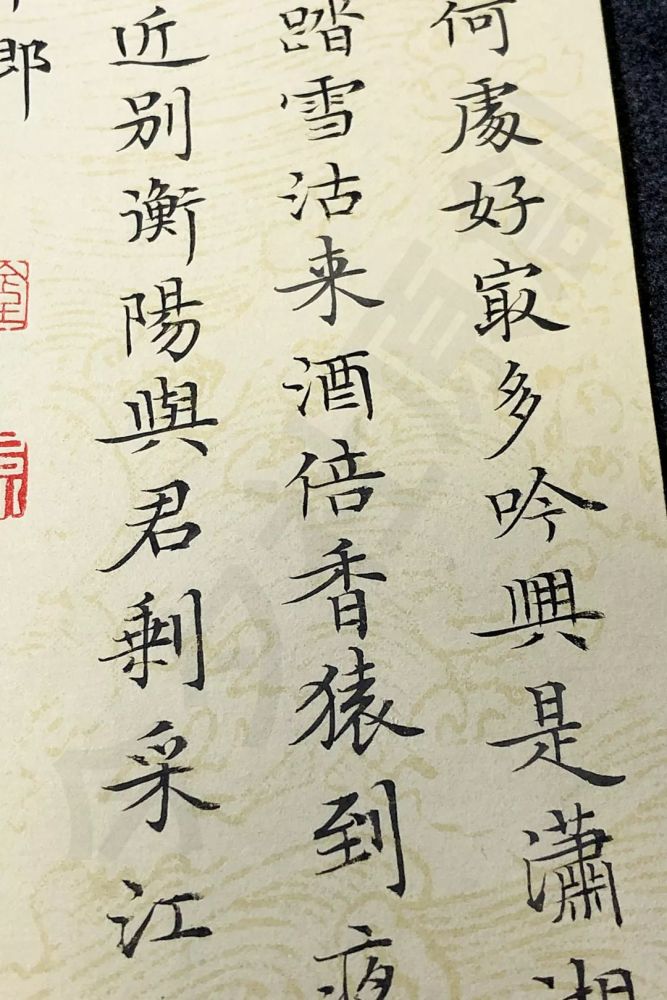 何處好最多吟興是瀟湘
踏雪沽来酒倍香猿到夜
近别衡陽與君剩采江
郎